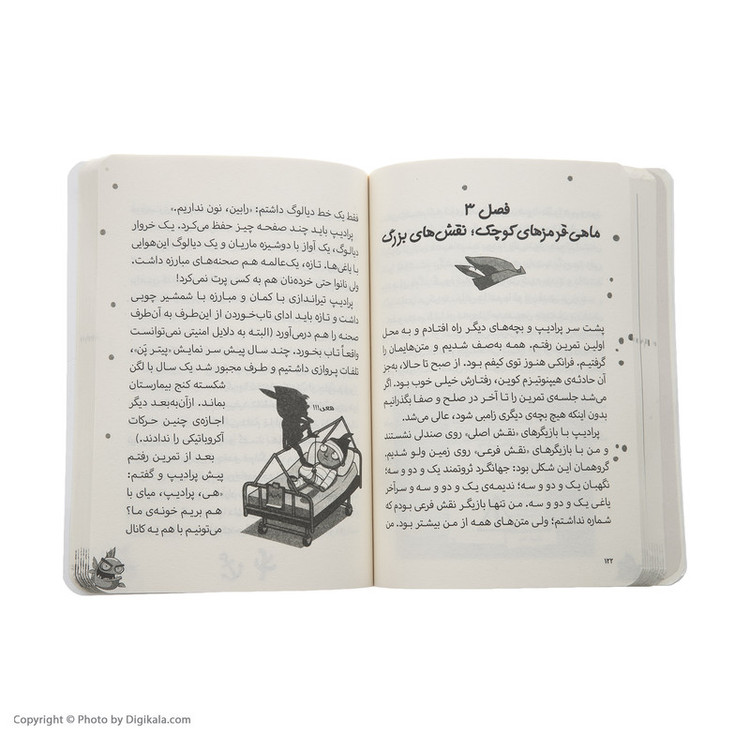 فصل ۳
ماهی قرمزهای کوچک؛ نقش‌های بزرگ
پشت سر پرادیپ و بچه‌های دیگر راه افتادم و به محل
اولین تمرین رفتم. همه به‌صف شدیم و متن‌هایمان را
گرفتیم. فرانکی هنوز توی کیفم بود. از صبح تا حالا، به‌جز
آن حادثه‌ی هیپنوتیزم کوین، رفتارش خیلی خوب بود. اگر
می‌شد جلسه‌ی تمرین را تا آخر در صلح و صفا بگذرانیم
بدون اینکه هیچ بچه‌ی دیگری زامبی شود، عالی می‌شد.
پرادیپ با بازیگرهای «نقش اصلی» روی صندلی نشستند
و من با بازیگرهای «نقش فرعی» روی زمین ولو شدیم.
گروهمان این شکلی بود: جهانگرد ثروتمند یک و دو و سه؛
نگهبان یک و دو و سه؛ ندیمه‌ی یک و دو و سه و سرآخر
یاغی یک و دو و سه. من تنها بازیگر نقش فرعی بودم که
شماره نداشتم؛ ولی متن‌های همه از من بیشتر بود. من
۱۲۲
فقط یک خط دیالوگ داشتم: «رابین، نون نداریم.»
پرادیپ باید چند صفحه چیز حفظ می‌کرد. یک خروار
دیالوگ، یک آواز با دوشیزه ماریان و یک دیالوگ این‌هوایی
با یاغی‌ها. تازه، یک‌عالمه هم صحنه‌های مبارزه داشت.
ولی نانوا حتی خرده‌نان هم به کسی پرت نمی‌کرد!
پرادیپ تیراندازی با کمان و مبارزه با شمشیر چوبی
داشت و تازه باید ادای تاب‌خوردن از این‌طرف به آن‌طرف
صحنه را هم درمی‌آورد (البته به دلایل امنیتی نمی‌توانست
واقعاً تاب بخورد. چند سال پیش سر نمایش «پیتر پَن»،
تلفات پروازی داشتیم و طرف مجبور شد یک سال با لگن
شکسته کنج بیمارستان
بماند. ازآن‌به‌بعد دیگر
اجازه‌ی چنین حرکات
آکروباتیکی را ندادند.)
بعد از تمرین رفتم
پیش پرادیپ و گفتم:
«هی، پرادیپ، میای با
هم بریم خونه‌ی ما؟
می‌تونیم با هم یه کانال
Copyright © Photo by Digikala.com